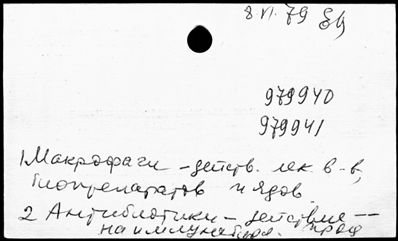 8 п. 79
979940
979941
1 Макрофаги – действ. лек. в-в,
биопрепаратов и ядов
2 Антибиотики – действие –
на иммунобиол.